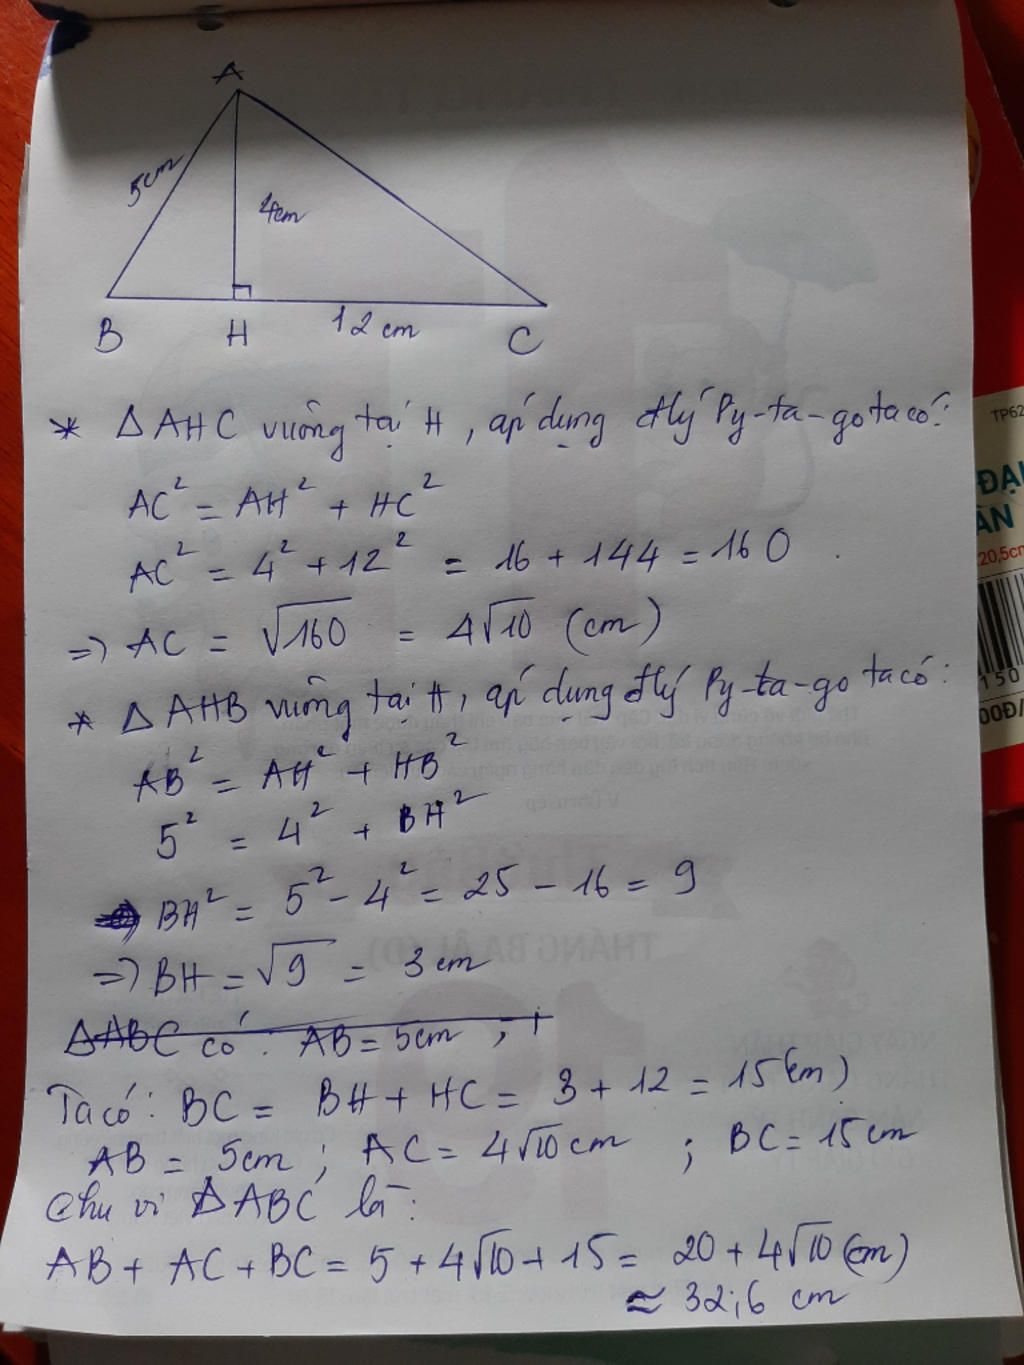 A
5cm
4cm
B H 12 cm C
* ΔAHC vuông tại H, áp dụng đlý Py-ta-go ta có:
AC² = AH² + HC²
AC² = 4² + 12² = 16 + 144 = 160
=> AC = √160 = 4√10 (cm)
* ΔAHB vuông tại H, áp dụng đlý Py-ta-go ta có:
AB² = AH² + HB²
5² = 4² + BH²
BH² = 5² - 4² = 25 - 16 = 9
=> BH = √9 = 3 cm
ΔABC có: AB = 5cm ;
Ta có: BC = BH + HC = 3 + 12 = 15 (cm)
AB = 5cm ; AC = 4√10 cm ; BC = 15 cm
Chu vi ΔABC là:
AB + AC + BC = 5 + 4√10 + 15 = 20 + 4√10 (cm)
≈ 32,6 cm
TP62
20,5cm
150
00Đ/